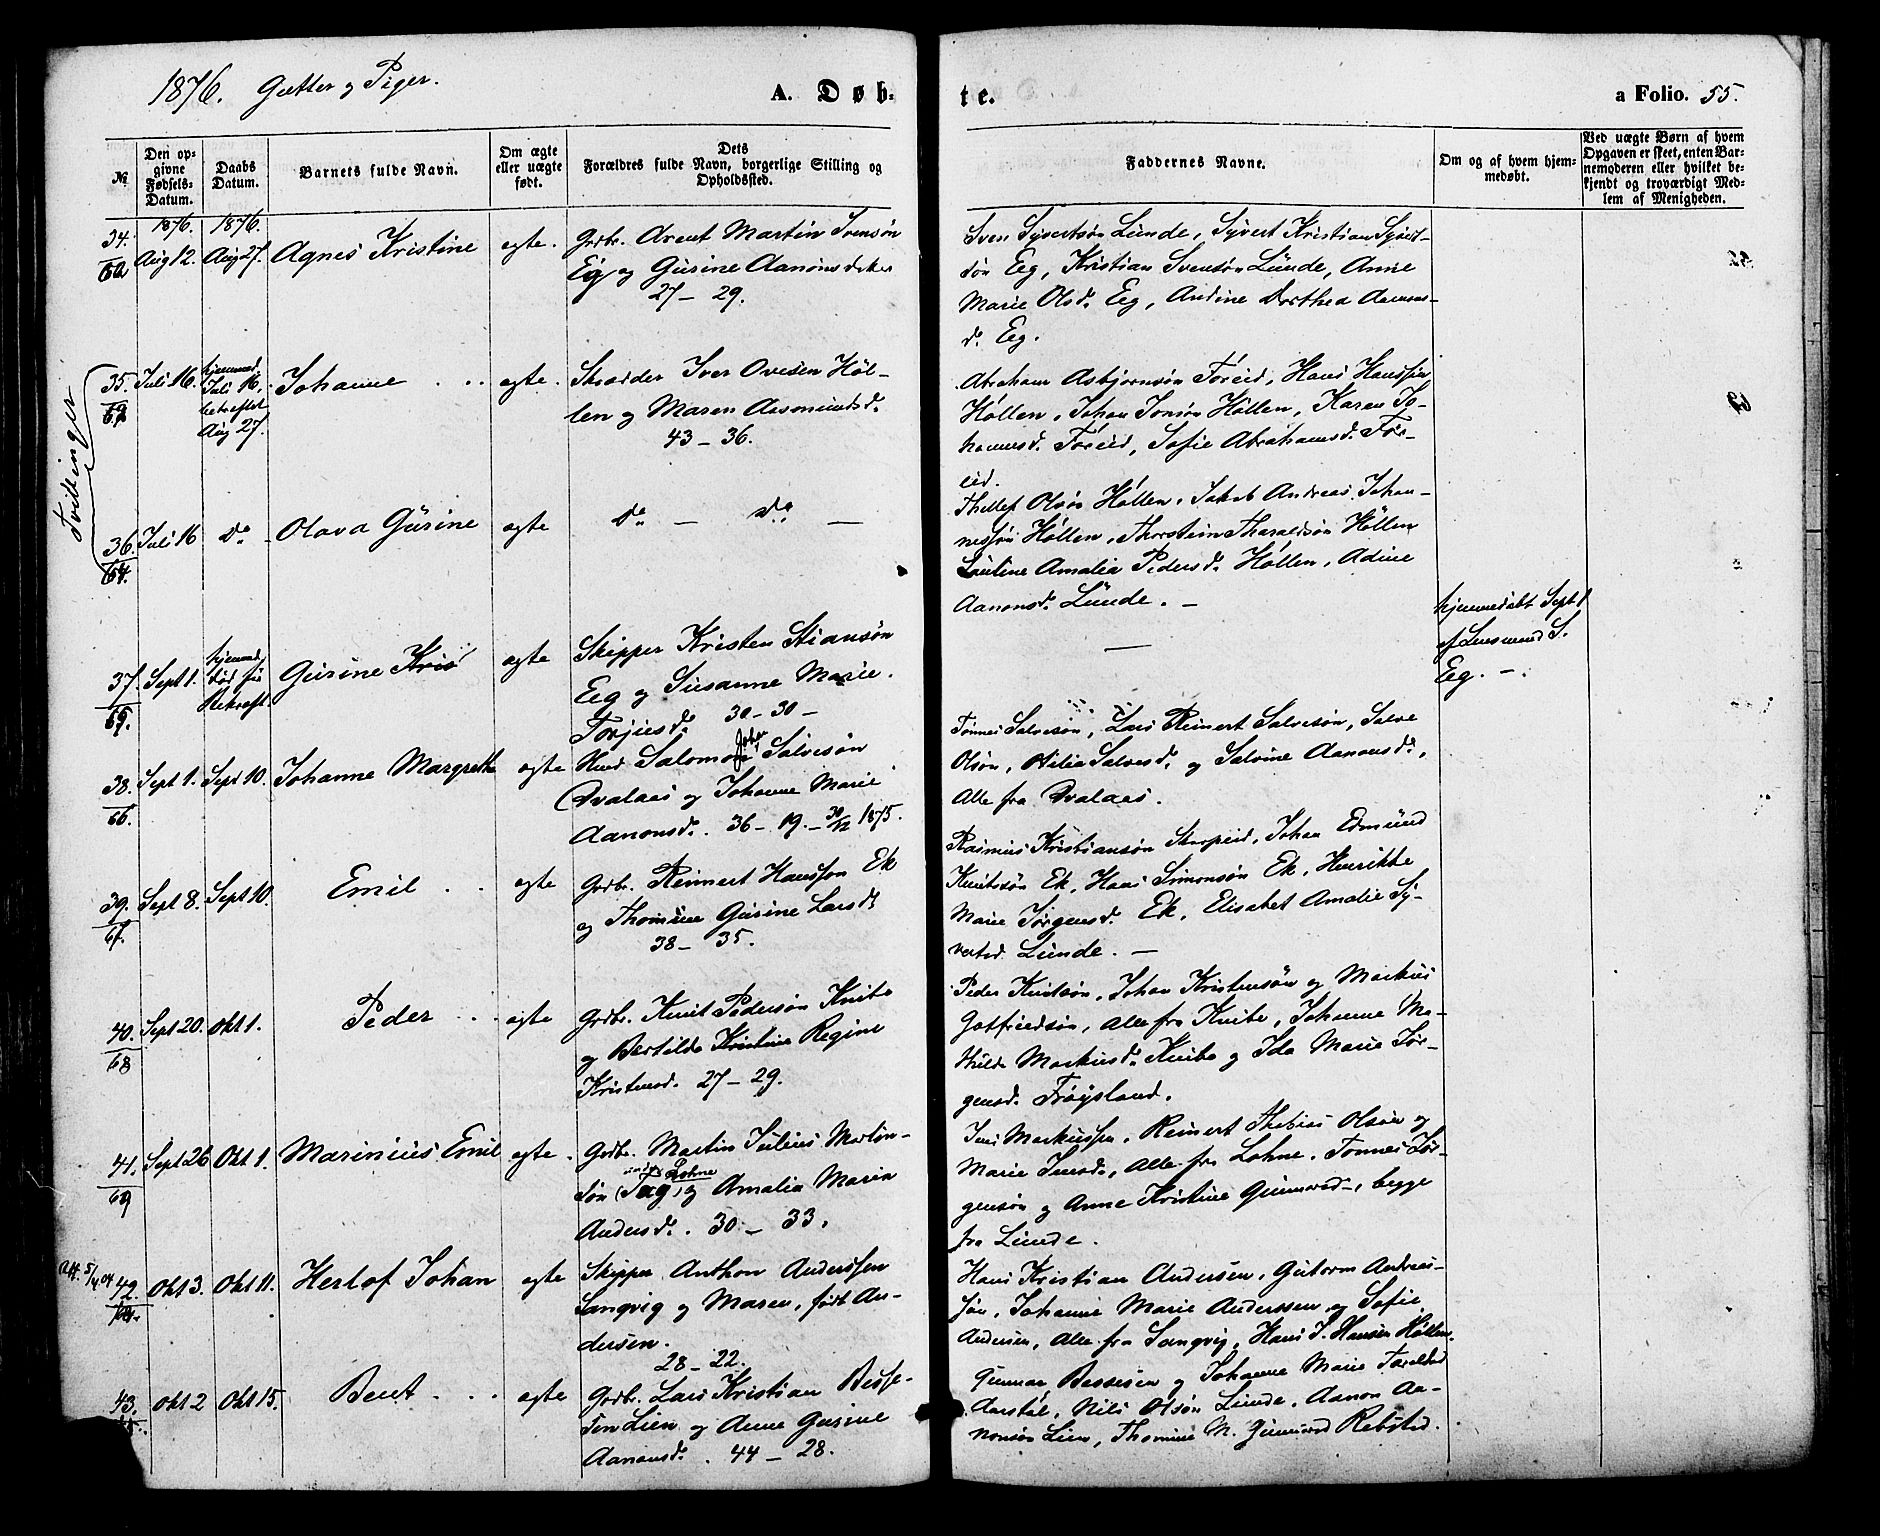 1876. Gutter og Piger.
A. Døb-
te.
a Folio. 55.
№
Den op-
givne
Fødsels-
Datum.
Daabs
Datum.
Barnets fulde Navn.
Om ægte
eller uægte
født.
Dets
Forældres fulde Navn, borgerlige Stilling og
Opholdssted.
Faddernes Navne.
Om og af hvem hjem-
medøbt.
Ved uægte Børn af hvem
Opgaven er skeet, enten Bar-
nemoderen eller hvilket be-
kjendt og troværdigt Med-
lem af Menigheden.
1876. 1876.
34.
Aug 12. Aug 27. Agnes Kristine ægte. Grdbr. Arent Martin Svensøn
Eig og Gusine Aanons
27 – 29.
Sven Syvertsøn Lunde, Syvert Kristian Syvert-
søn Eeg, Kristian Svensøn Lunde, Anne
Marie Olsd. Eeg, Andine Dorthea Aanons-
d. Eeg.
Tvillinger
35.
Juli 16. hjemmed.
Juli 16.
bekræftet
Aug 27.
Johanne ægte. Skrædder Iver Ovesen Høl-
len og Maren Aasmundsd.
43 – 36.
Abraham Asbjørnsøn Føreid, Hans Hanssøn
Høllen, Johan Jonsøn Høllen, Karen Jo-
hannesd. Føreid, Sofie Abrahamsd. Før-
eid.
36.
64.
Juli 16 Do Olava Gusine ægte Do – Do –
Thellef Olsøn Høllen, Jakob Andreas Johan-
nessøn Høllen, Thorstein Tharaldsøn Høllen
Lauline Amalia Pedersd. Høllen, Adine
Aanonsd. Lunde. –
37.
65.
Sept 1. hjemmed.
død før
Bekræft.
Gusine ægte Skipper Kristen Stiansøn
Eeg og Susanne Marie
Torjusd. 30 – 30 –
—
hjemmedøbt Sept 1
af Lensmand S.
Eeg. –
38.
66.
Sept 1. Sept 10. Johanne Margrethe ægte Huusd. Salomon Johan Salvesøn
Kvalaas og Johanne Marie
Aanonsd. 36 – 19. – 30/12 1875.
Tønnes Salvesøn, Lars Reinert Salvesøn, Salve
Olsøn, Salvesd. og Salvine Aanonsd.,
Alle fra Kvalaas.
39.
67.
Sept 8. Sept 10. Emil ægte Grdbr. Reinert Hanssøn Ek
og Thomine Gusine Larsd.
38 – 35.
Rasmus Kristiansøn Skarpeid, Johan Edmund
Knutssøn Ek, Hans Simonsøn Ek, Henrikke
Marie Jørgensd. Ek, Elisabet Amalie Sy-
vertsd. Lunde. –
40.
68
Sept 20. Okt 1. Peder ægte Grdbr. Knut Pedersøn Knibe
og Bertilde Kristine Regine
Kristensd. 27 – 29.
Peder Knutsøn, Johan Kristensøn og Markus
Gotfriedsøn, Alle fra Knibe, Johanne Ma-
thilde Markusd. Knibe og Ida Marie Jør-
gensd. Frøysland.
41.
69
Sept 26 Okt 1. Marinius Emil ægte. Grdbr. Martin Julius Martin-
søn Lohne og Amalia Maria
Andersd. 30 – 33.
Jens Markussøn, Reinert Thobias Olsøn og
Marie Jensd., Alle fra Lohne, Tønnes Jør-
gensøn og Anne Kristine Gunnarsd., begge
fra Lunde.
42.
Okt 3. Okt 11. Herlof Johan ægte Skipper Anthon Anderssen
Langvig og Maren, født An-
dersen.
28 – 22.
Hans Kristian Andersen, Gutorm Andreas-
søn, Johanne Marie Anderssen og Sofie
Andersen, Alle fra Langvig, Hans J. Hansen Høllen.
43.
Okt 2 Okt 15. Bent ægte Grdbr. Lars Kristian Besse-
sen Lien og Anne Gusine
Aanonsd. 44 – 28.
Gunnar Bessesen og Johanne Marie Taraldsd.
Aarstøl, Nils Olsøn Lunde, Aanon Aa-
nonsøn Lien, Thomine M. Gunnarsd. Rebsted.